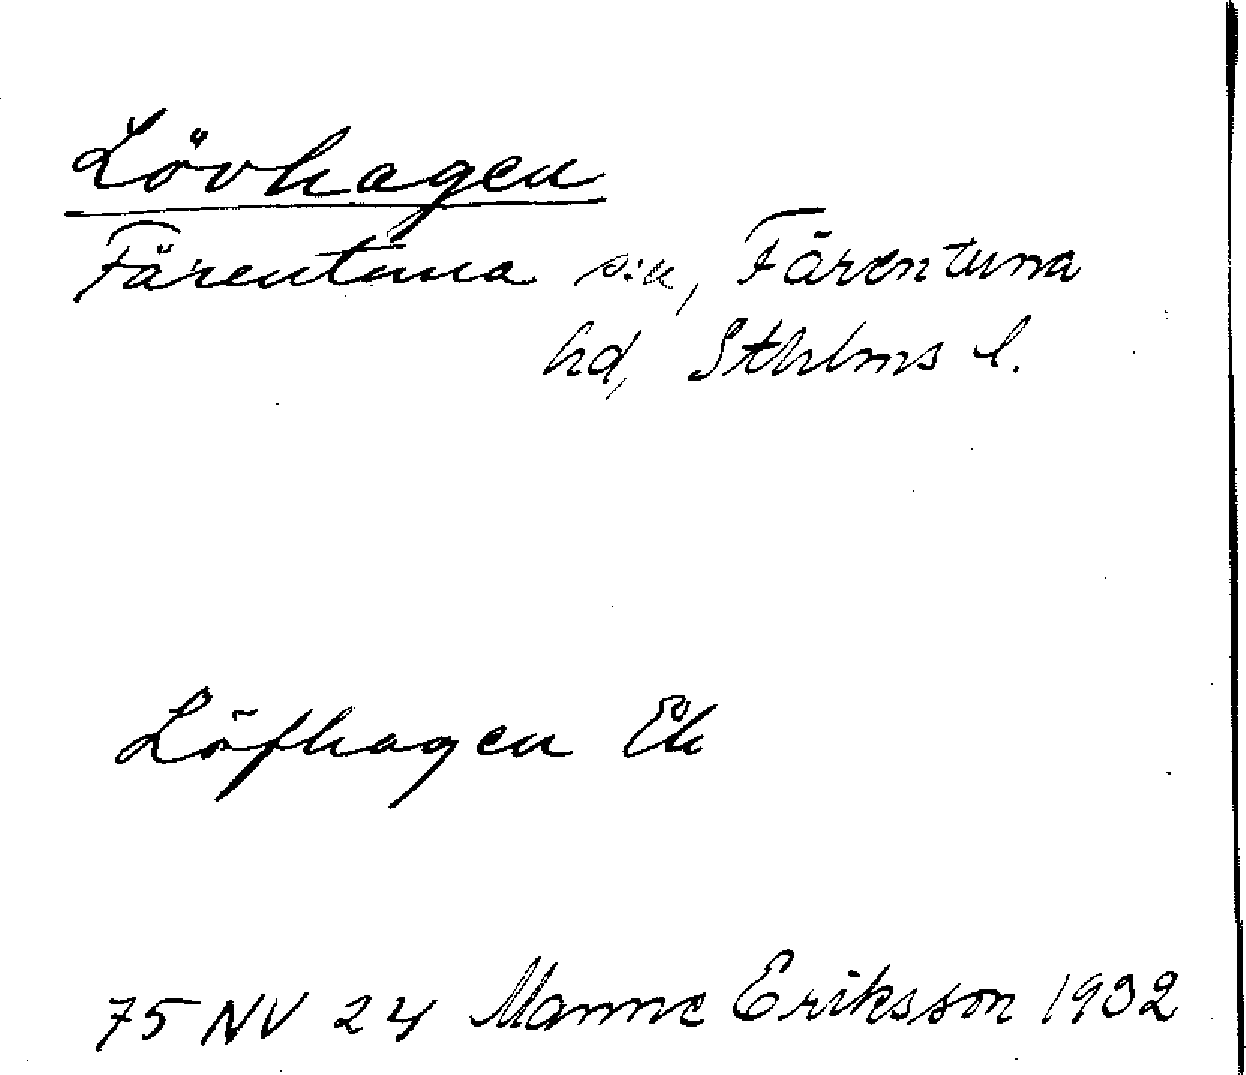 Lövhagen
Färentuna s:n, Färentuna
hd, Sthlms l.
Löfhagen Ek
75 NV 24 Manne Eriksson 1932